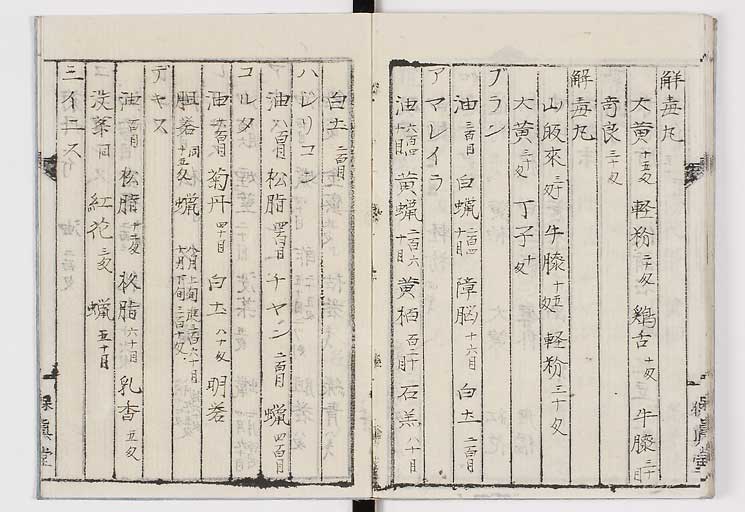 解毒丸
大黄十五匁 軽粉二十匁 鶏舌十匁 牛膝三十目
奇良三十匁
解毒丸
山皈來三匁 牛膝十五匁 軽粉三十匁
大黄三十匁 丁子十匁
ブラン
油三百目 白蝋二百四十目 障脳十六目 白土二百目
アマレイラ
油六百四十目 黄蝋二百六十目 黄栢百二十目 石羔八十目
保眞堂
白土二百目
ハレリコン
油八百目 松脂四百目 チヤン二百目 蝋四百目
コルタ
油六百目 菊丹四十目 白土八十匁 明礬
胆礬同十五匁 蝋
テヤス
油百目 松脂 松脂六十目 乳香五匁
没薬同 紅花三匁 蝋五十目
ミイニス
保眞堂